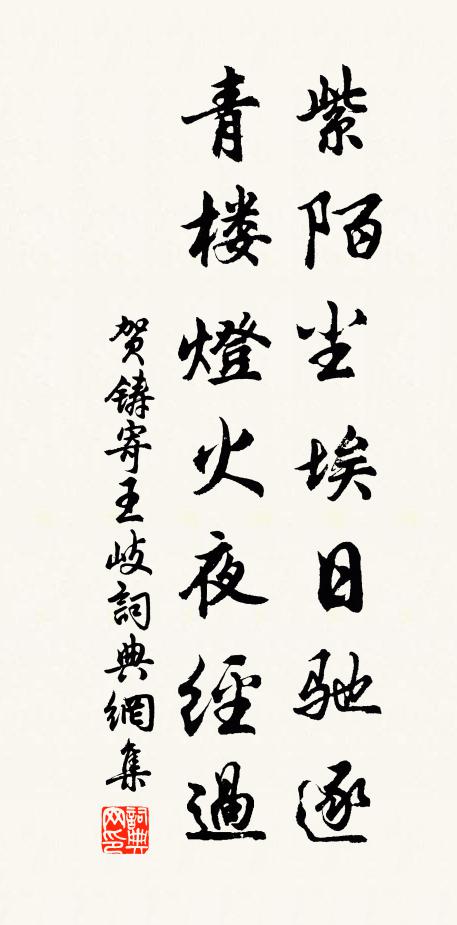 紫陌尘埃日驰逐
青楼燈火夜經過
贺鑄寄王岐詞典網集
詞典网印